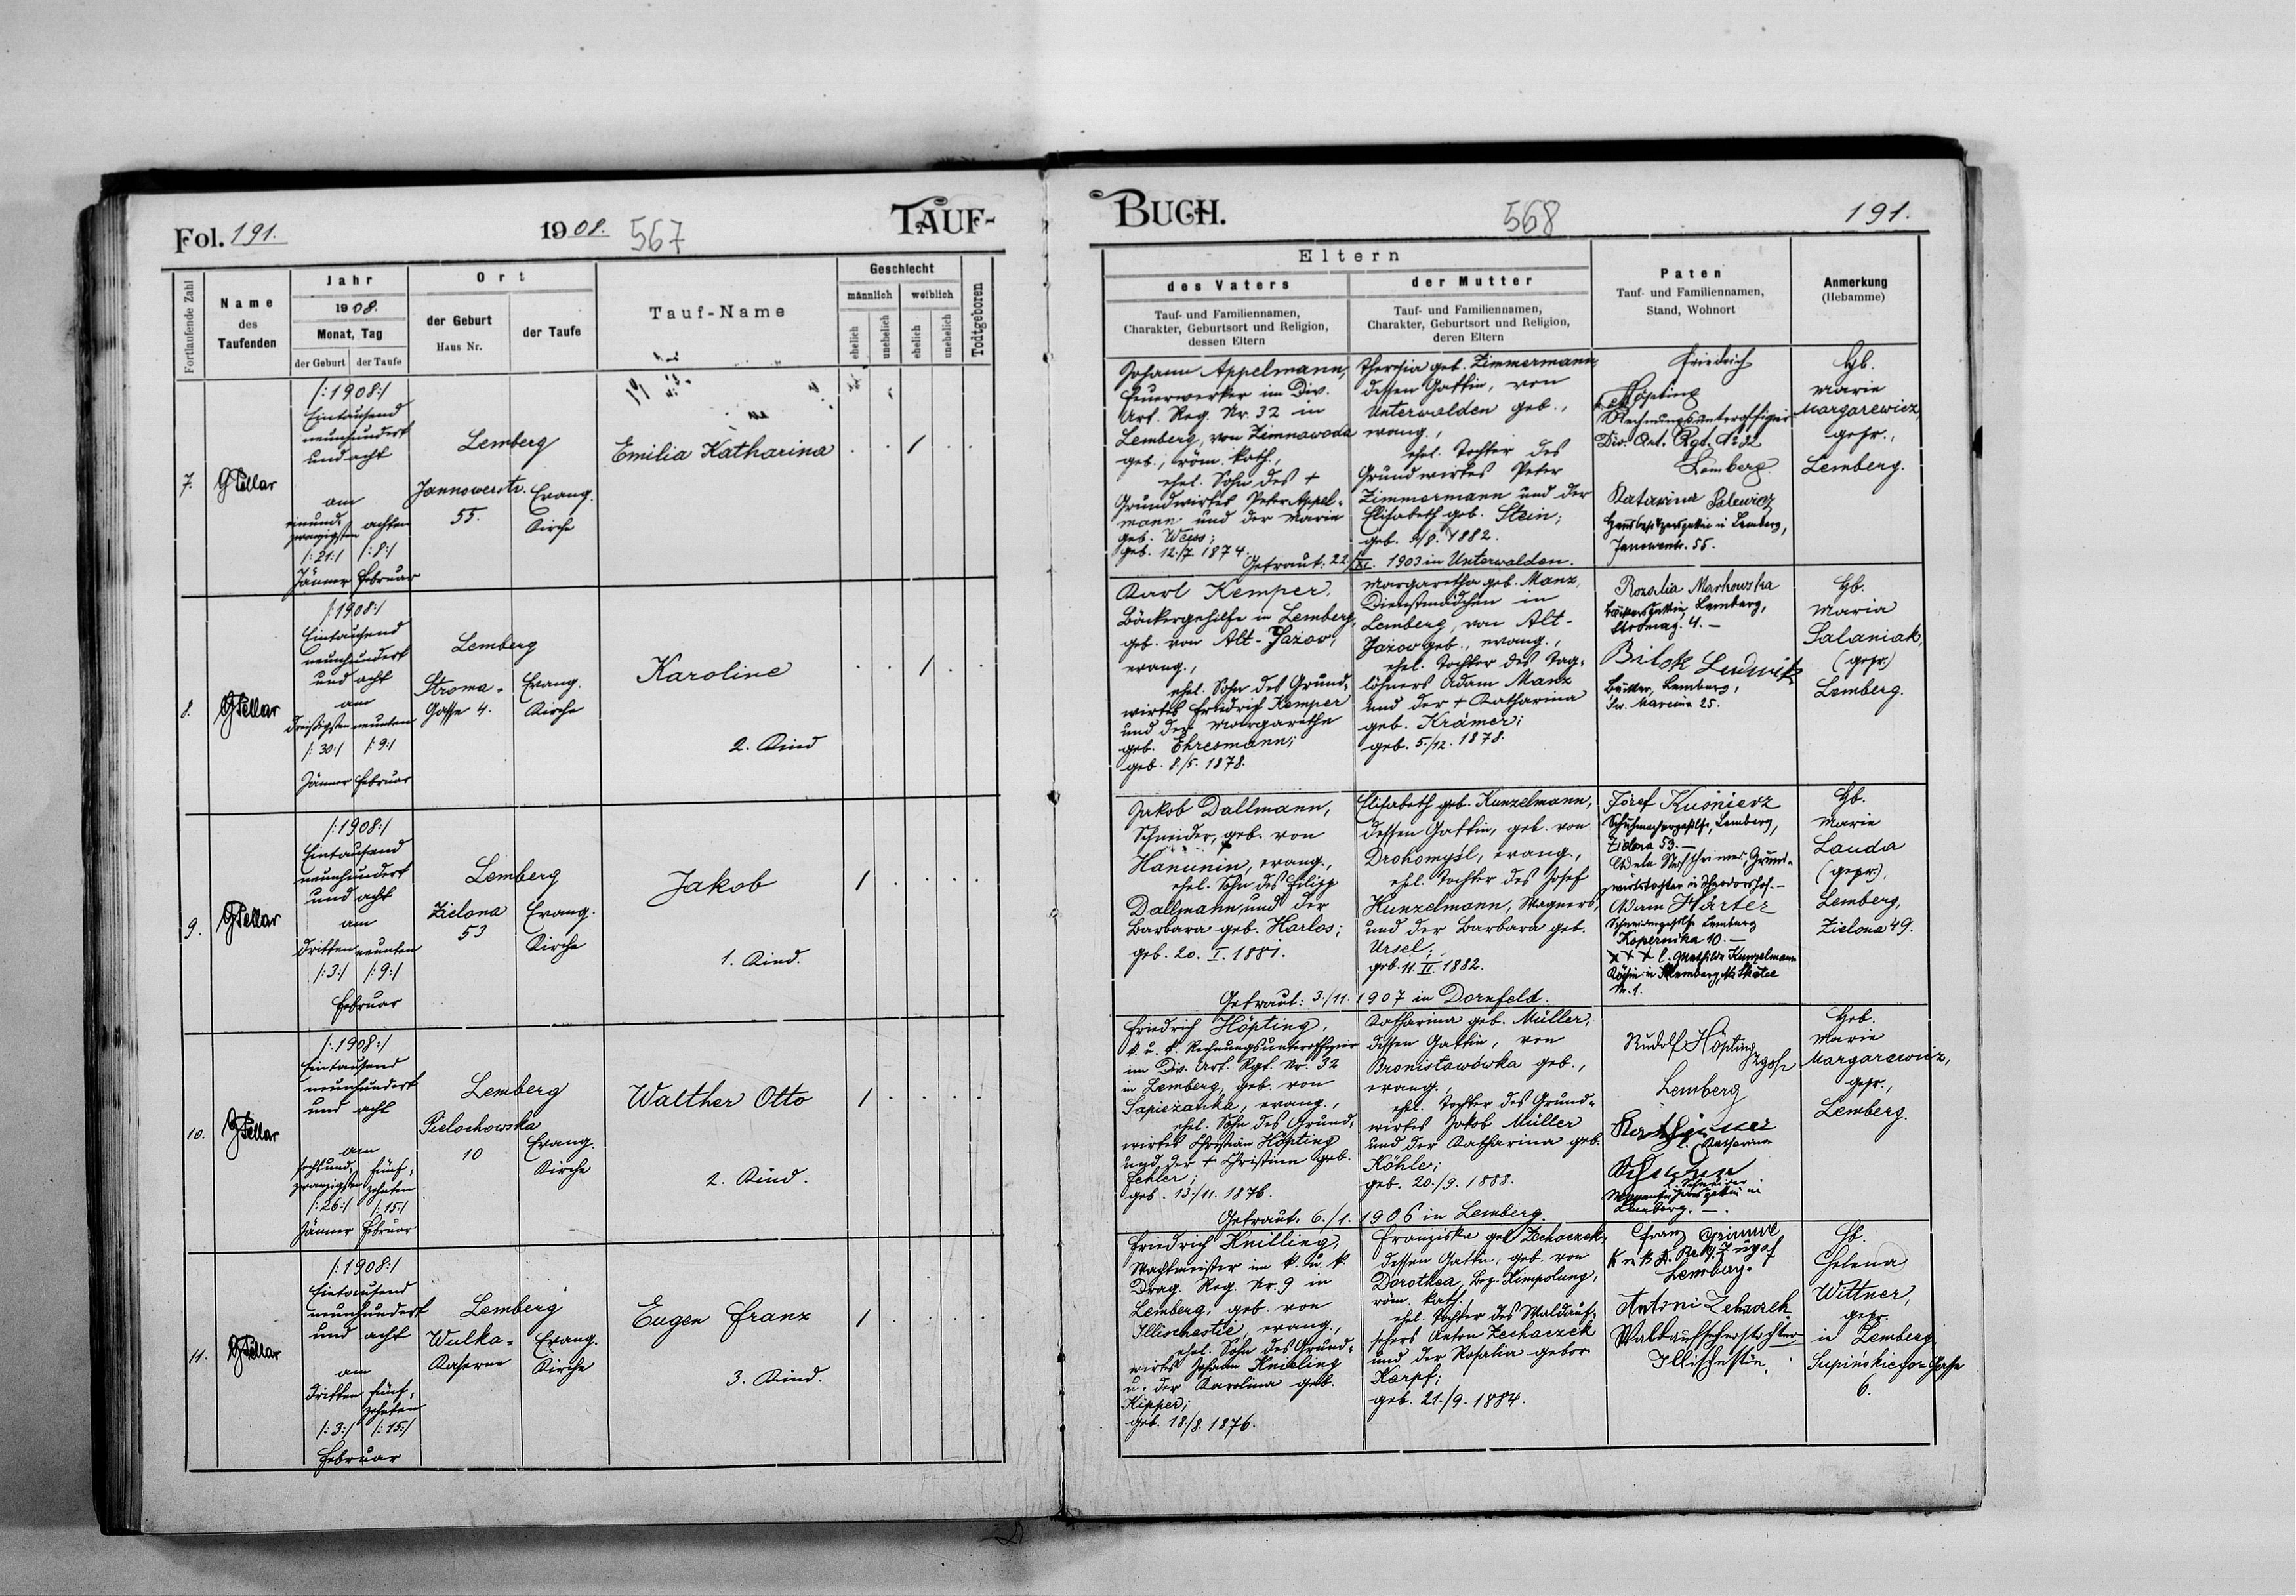 Fol. 191.
1908.
567
TAUF-
Fortlaufende Zahl
Name
des
Taufenden
Jahr
1908.
Monat, Tag
der Geburt
der Taufe
Ort
der Geburt
Haus Nr.
der Taufe
Tauf-Name
Geschlecht
männlich
weiblich
ehelich
unehelich
ehelich
unehelich
Todtgeboren
7.
/:1908:/
Eintausend
neunhundert
und acht
am
einund-
zwanzigsten
/:21:/
Jänner
achten
/:8:/
Februar
Lemberg
Jannowerstr.
55.
Evang.
Kirche
Emilia Katharina
1
8.
/:1908:/
Eintausend
neunhundert
und acht
am
dreißigsten
/:30:/
Jänner
neunten
/:9:/
Februar
Lemberg
Stroma-
Gasse 4.
Evang.
Kirche
Karoline
2. Kind
1
9.
/:1908:/
Eintausend
neunhundert
und acht
am
dritten
/:3:/
neunten
/:9:/
Februar
Lemberg
Zielona
53
Evang.
Kirche
Jakob
1. Kind.
1
10.
/:1908:/
Eintausend
neunhundert
und acht
am
sechsund-
zwanzigsten
/:26:/
Jänner
fünf-
zehnten
/:15:/
Februar
Lemberg
Pielochowska
10
Evang.
Kirche
Walther Otto
2. Kind.
1
11.
/:1908:/
Eintausend
neunhundert
und acht
am
dritten
/:3:/
fünf-
zehnten
/:15:/
Februar
Lemberg
Wulka-
Kaserne
Evang.
Kirche
Eugen Franz
3. Kind.
1
BUCH.
568
191.
Eltern
des Vaters
Tauf- und Familiennamen,
Charakter, Geburtsort und Religion,
dessen Eltern
der Mutter
Tauf- und Familiennamen,
Charakter, Geburtsort und Religion,
deren Eltern
Paten
Tauf- und Familiennamen,
Stand, Wohnort
Anmerkung
(Hebamme)
Johann Appelmann,
Feuerwerker im Div.
Art. Reg. Nr. 32 in
Lemberg, von Zimnawoda
geb., röm. kath.,
ehel. Sohn des +
Grundwirtes Peter Appel-
mann und der Marie
geb. Weiss;
geb. 12./7. 1874.
Theresia geb. Zimmermann,
dessen Gattin, von
Unterwalden geb.,
evang.,
ehel. Tochter des
Grundwirtes Peter
Zimmermann und der
Elisabeth geb. Stein;
geb. 9/8. 1882.
Getraut: 22/XI. 1903 in Unterwalden.
Friedrich
Höpting
Rechnungsunteroffizier
Div. Art. Rgt. No 32
Lemberg.
Katarina
Hausbesitzersgattin in Lemberg,
55.
Hb.
Marie
Margarewicz,
gepr.,
Lemberg.
Karl Kemper,
Bäckergehilfe in Lemberg,
geb. von Alt-Jazow,
evang.,
ehel. Sohn des Grund-
wirtes Friedrich Kemper
und der Margarethe
geb. Ehresmann;
geb. 8./5. 1878.
Margaretha geb. Manz,
Dienstmädchen in
Lemberg, von Alt-
Jazow geb., evang.,
ehel. Tochter des Tag-
löhners Adam Manz
und der + Katharina
geb. Krämer;
geb. 5./12. 1878.
Rozalia Markowska
Bäckersgattin, Lemberg,
Stromag. 4.-
Ludwik
Bäcker, Lemberg,
Sw. Marcina 25.
Hb.
Maria
Salaniak,
(gepr.)
Lemberg.
Jakob Dallmann,
Schneider, geb. von
Hanunin, evang.,
ehel. Sohn des Filipp
Dallmann und der
Barbara geb. Harlos;
geb. 20. I. 1881.
Elisabeth geb. Kunzelmann,
dessen Gattin, geb. von
Drohomyśl, evang.,
ehel. Tochter des Josef
Kunzelmann, Wagners,
und der Barbara geb.
Ursel;
geb. 11. II. 1882.
Getraut: 3./11. 1907 in Dornfeld.
Józef Kuśnierz
Schuhmachergehilfe, Lemberg,
Zielona 53.-
Grund-
wirtstochter in Theodorshof.-
Adam Härter
Schneidergehilfe Lemberg
Kopernika 10.-
+++ l. Mathilde Kunzelmann
Köchin in Lemberg,
Nr. 1.
Hb.
Marie
Lauda
(gepr.).
Lemberg,
Zielona 49.
Friedrich Höpting,
k. u. k. Rechnungsunteroffizier
im Div. Art. Rgt. Nr. 32
in Lemberg, geb. von
Sapiezanka, evang.,
ehel. Sohn des Grund-
wirtes Christian Höpting
und der + Christina geb.
Fehler;
geb. 13./11. 1876.
Katharina geb. Müller,
dessen Gattin, von
Bronisławówka geb.,
evang.,
ehel. Tochter des Grund-
wirtes Jakob Müller
und der Katharina geb.
Köhle;
geb. 20./9. 1888.
Getraut: 6./1. 1906 in Lemberg.
Rudolf Höpting
Lemberg
Katharina
Lemberg.-.
Heb.
Marie
Margarewicz,
gepr.,
Lemberg.
Friedrich Knilling,
Wachtmeister im k. u. k.
Drag. Reg. Nr. 9 in
Lemberg, geb. von
Illischestie, evang.,
ehel. Sohn des Grund-
wirtes Johann Kneiling
u. der Karolina geb.
Kipper;
geb. 18./8. 1876.
Franziska geb Zechaczek,
dessen Gattin, geb. von
Dorothea, Bez. Kimpolung,
röm. kath.,
ehel. Tochter des Waldauf-
sehers Anton Zechaczek
und der Rosalia gebor
Karpf;
geb. 21./9. 1884.
Franz
Lemberg.
Antoni
Waldaufseherstochter
Illischestie.
Hb.
Helena
Wittner,
gepr.
in Lemberg
Supińskiego-Gasse
6.